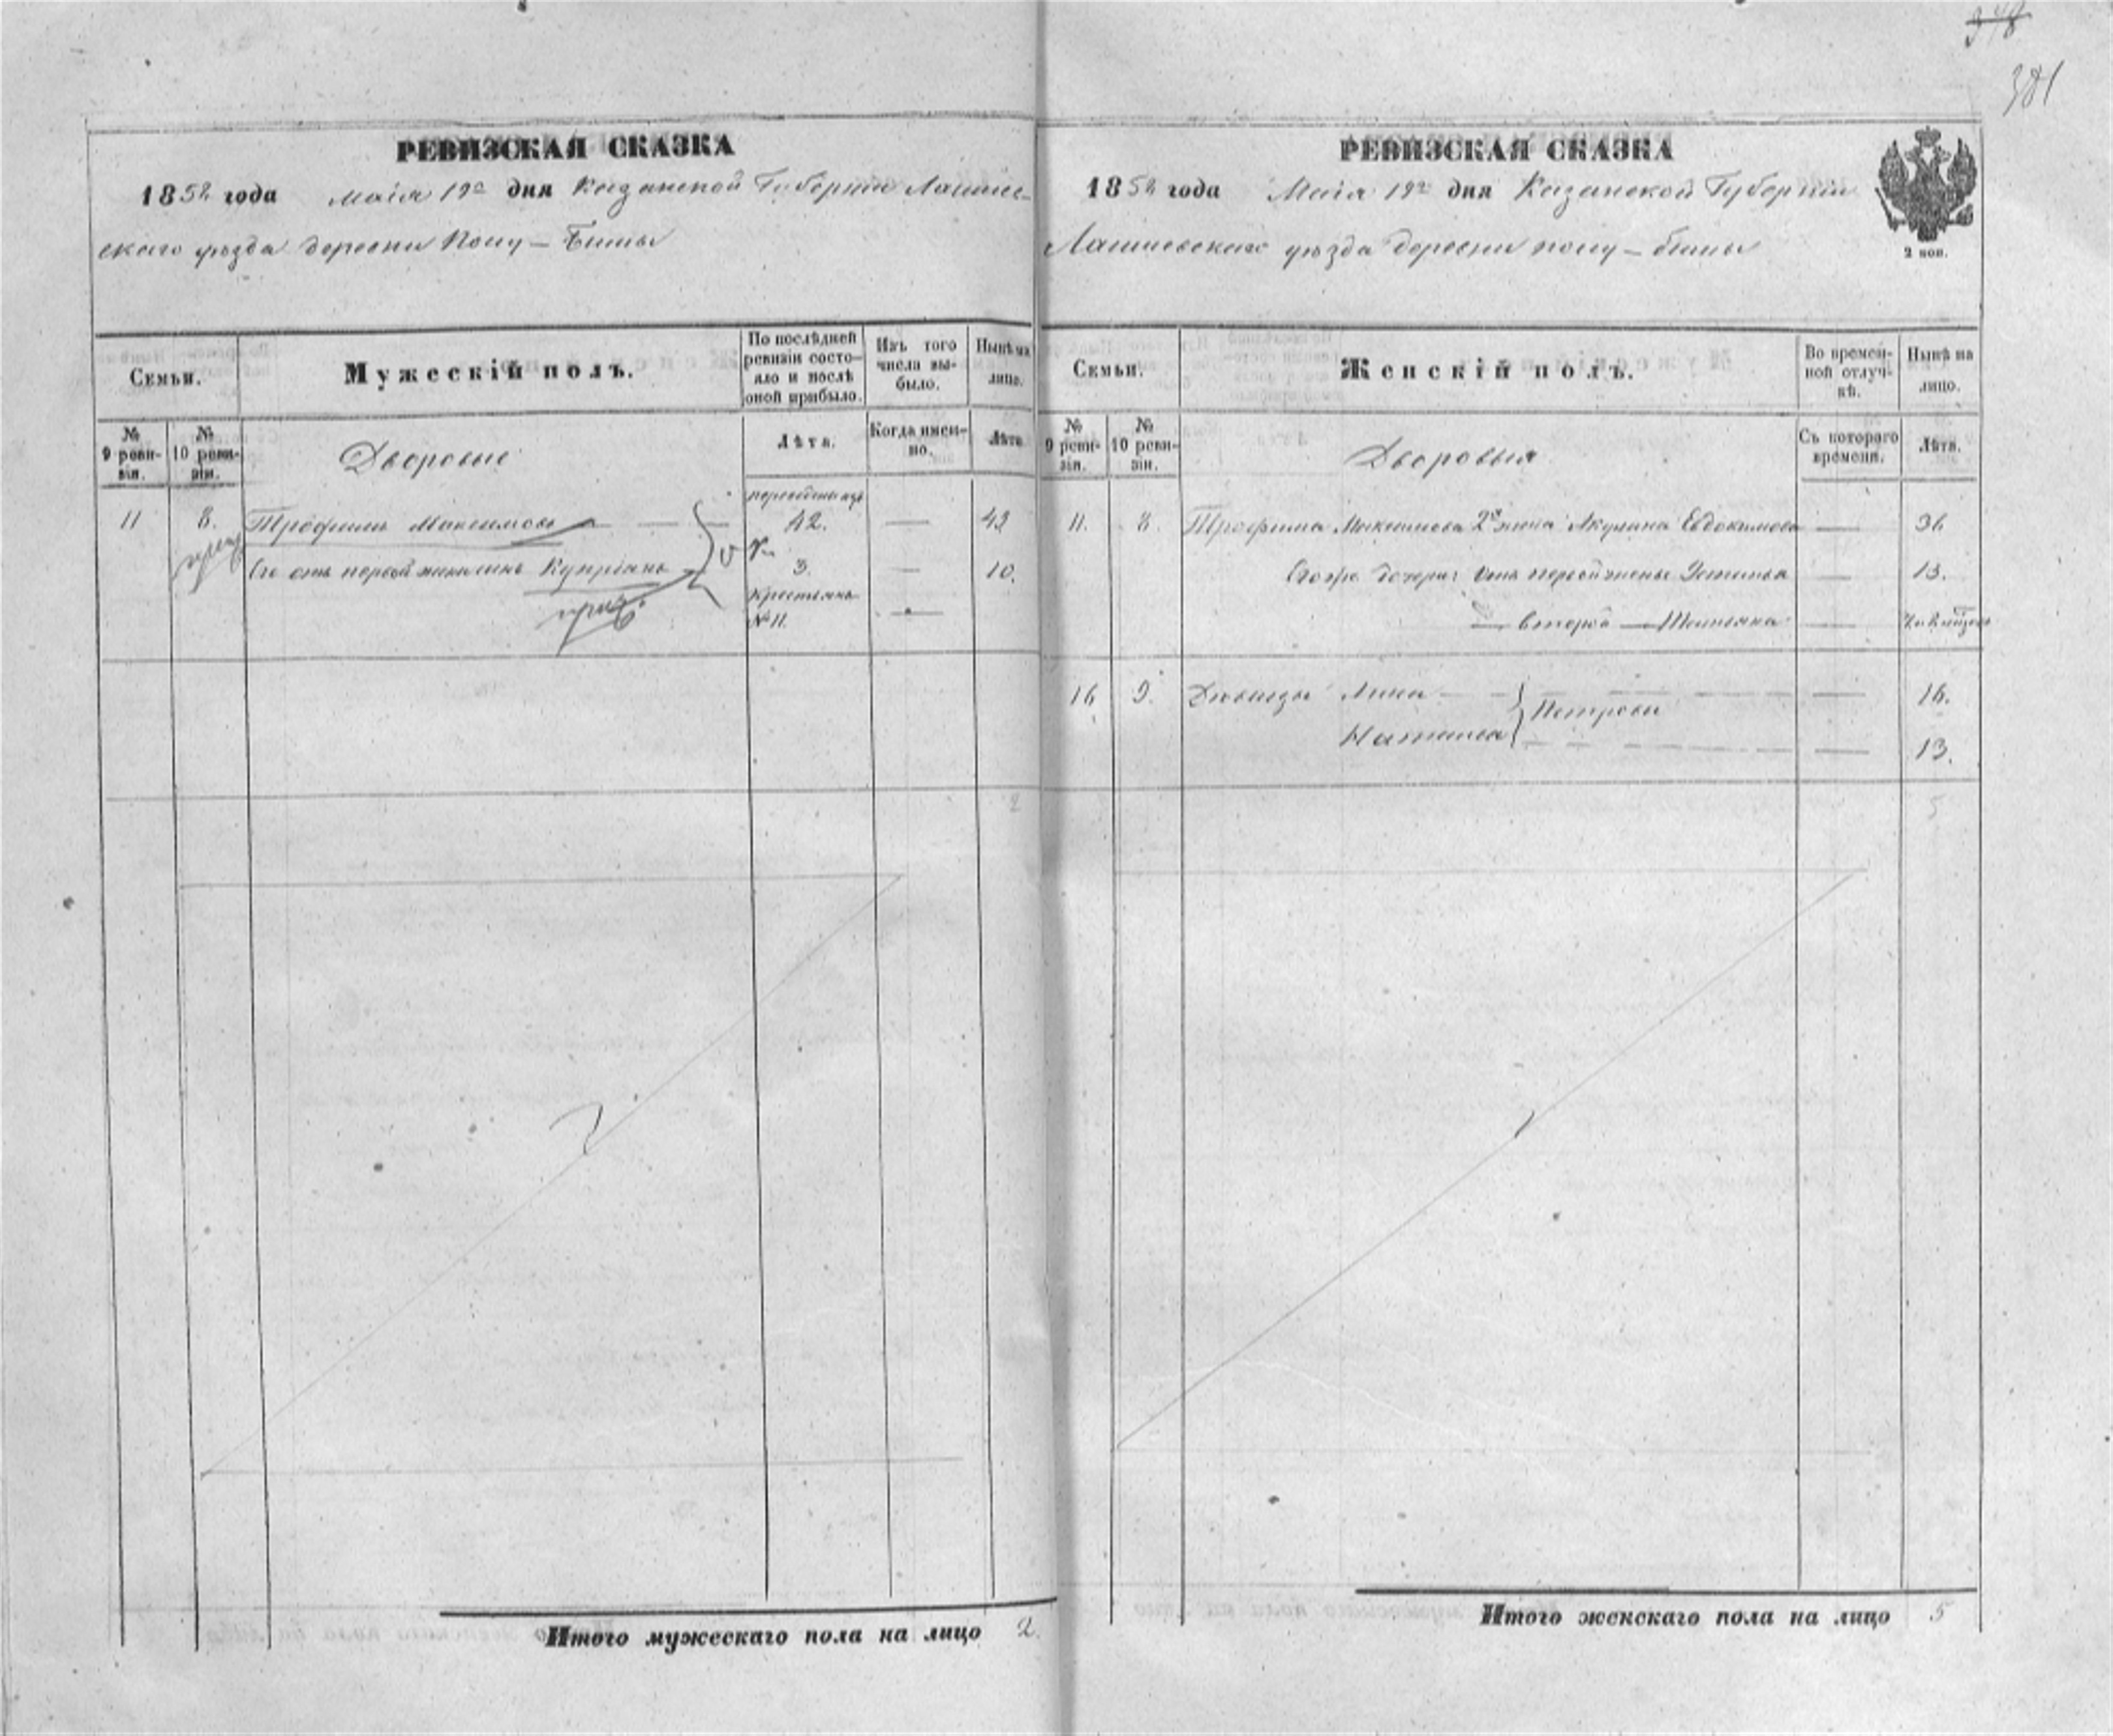 381
РЕВИЗСКАЯ СКАЗКА
1858 года Маія 19го дня Казанской Губерніи Лаишев-
скаго уѣзда деревни
Семьи.
Мужескій полъ.
По послѣдней ревизіи состо-
яло и послѣ
оной прибыло.
Изъ того
числа вы-
было.
Нынѣ на
лицо.
№
9 реви-
зіи.
№
10 реви-
зіи.
Дворовые
Лѣта.
Когда имен-
но.
Лѣта
11 8. Трофимъ Максимовъ 42. — 43
Его отъ первой жены сынъ Купріянъ 3. — 10.
крестьянъ
№ 11.
2
Итого мужескаго пола на лицо 2.
РЕВИЗСКАЯ СКАЗКА
1858 года Маія 19го дня Казанской Губерніи
Лаишевскаго уѣзда деревни
2 коп.
Семьи.
Женскій полъ.
Во времен-
ной отлуч-
кѣ.
Нынѣ на
лицо.
№
9 реви-
зіи.
№
10 реви-
зіи.
Дворовыя
Съ котораго
времени.
Лѣта.
11. 8. Трофима Максимова 2я жена Акулина Евдокимова — 36
Его же дочери: Отъ первой жены Устинья — 13.
— второй — Татьяна —
16 9. Дѣвицы Анна — Петровы — 16.
Наталья — 13.
5
Итого женскаго пола на лицо 5